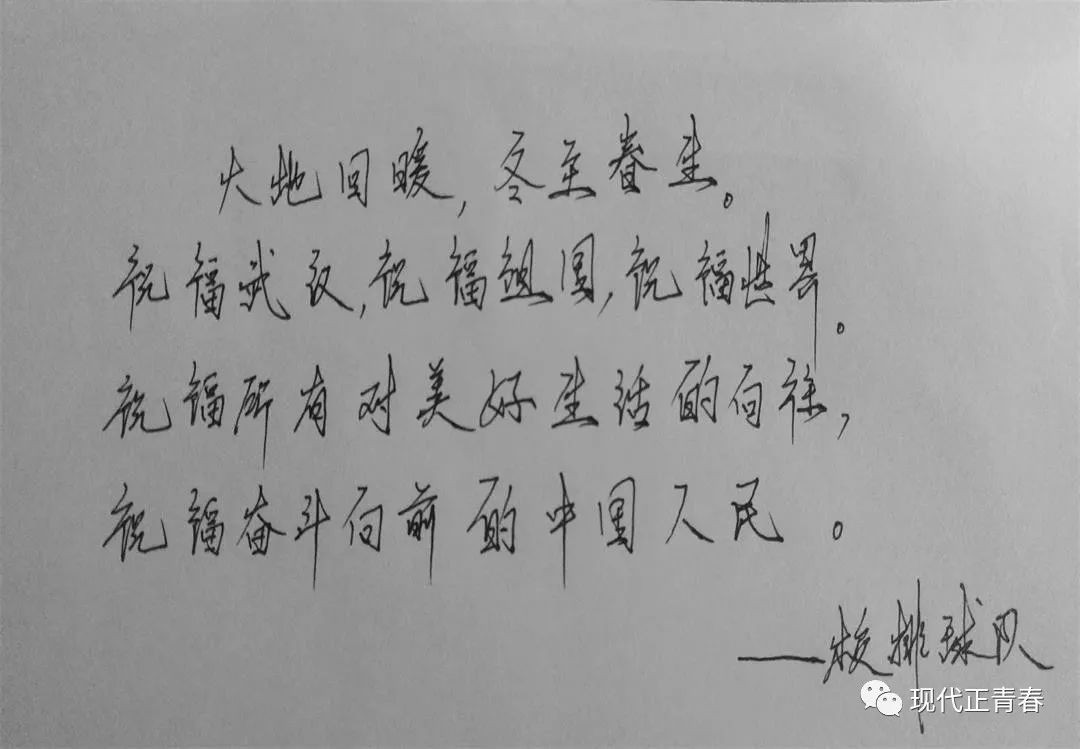 大地回暖，冬至春生。
祝福武汉，祝福祖国，祝福世界。
祝福所有对美好生活的向往，
祝福奋斗向前的中国人民。
——校排球队
现代正青春